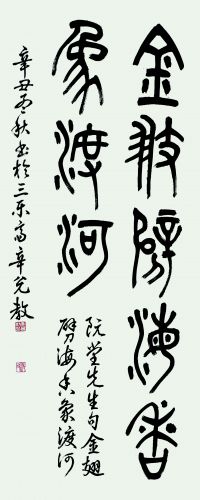 金翅劈海香
象渡河
阮堂先生句金翅
劈海香象渡河
辛丑秋书於三乐斋辛教